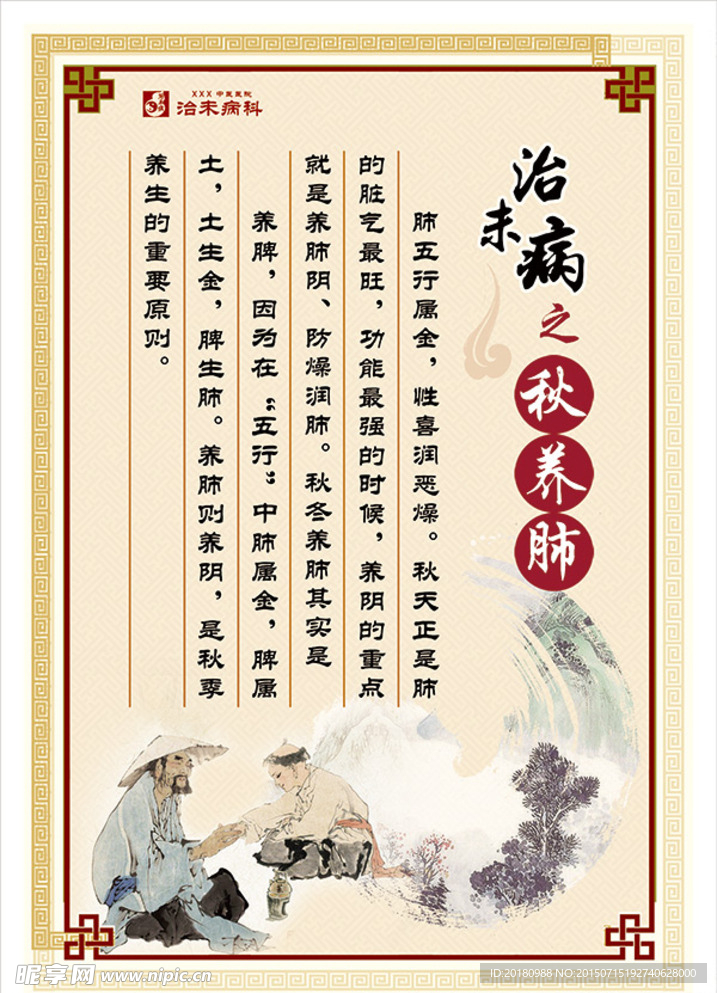 XXX 中医医院
治未病科
治未病
之
秋养肺
肺五行属金，性喜润恶燥。秋天正是肺
的脏气最旺，功能最强的时候，养阴的重点
就是养肺阴、防燥润肺。秋冬养肺其实是
养脾，因为在“五行”中肺属金，脾属
土，土生金，脾生肺。养肺则养阴，是秋季
养生的重要原则。
昵享网 www.nipic.cn
ID:20180988 NO:20150715192740628000